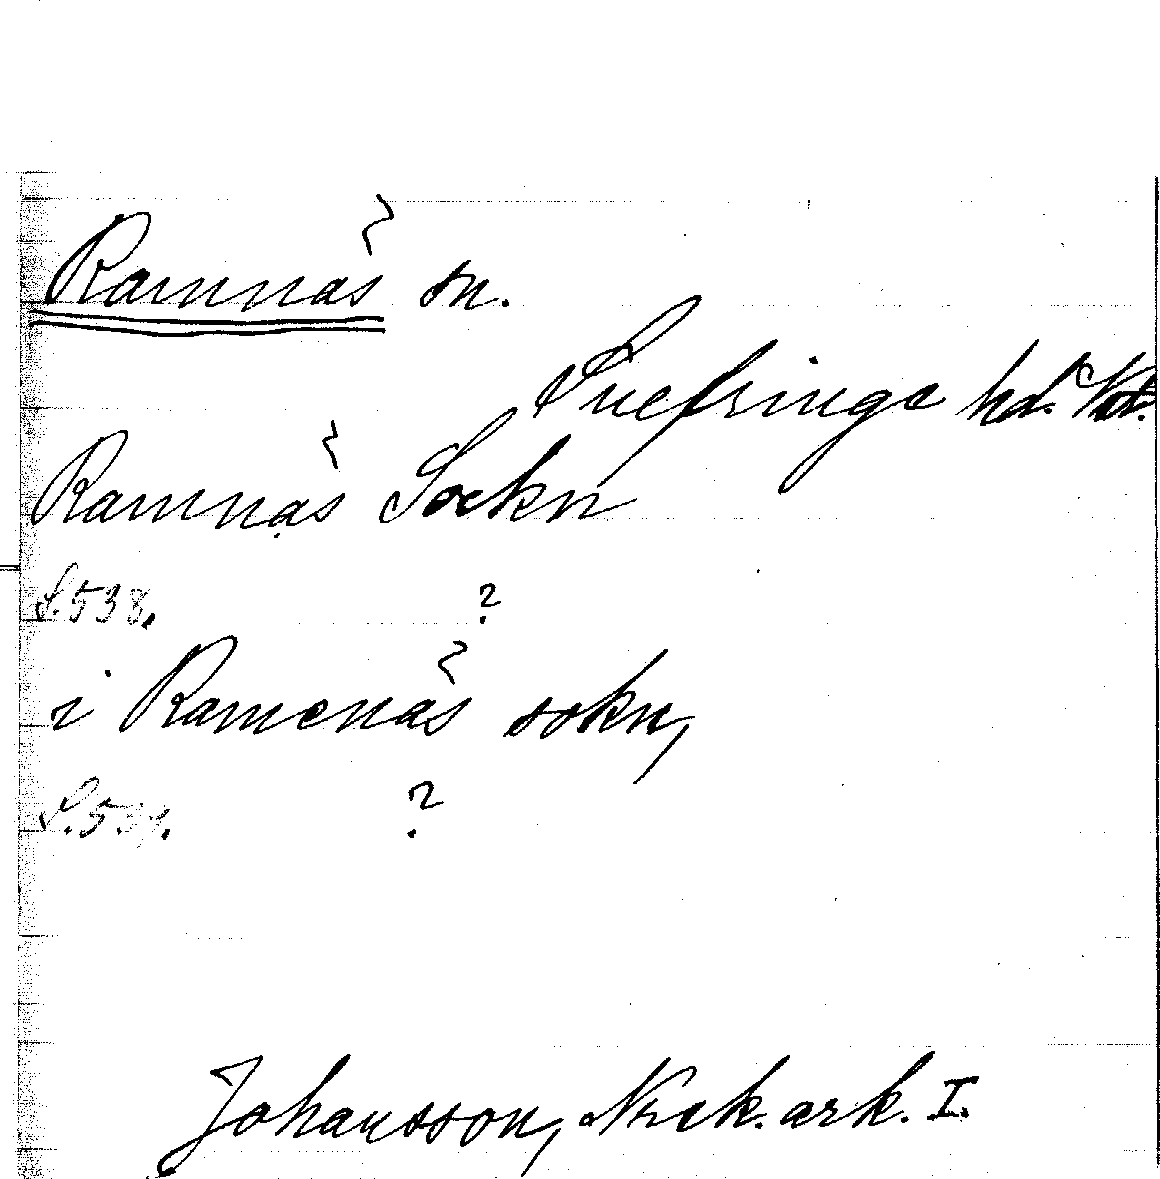 Ramnäs sn.
Snefringe hd. Vstm.
Ramnäs Sockn
S. 538. ?
i Ramenäs sokn,
S. 539. ?
Johansson, Norak. ark. I.